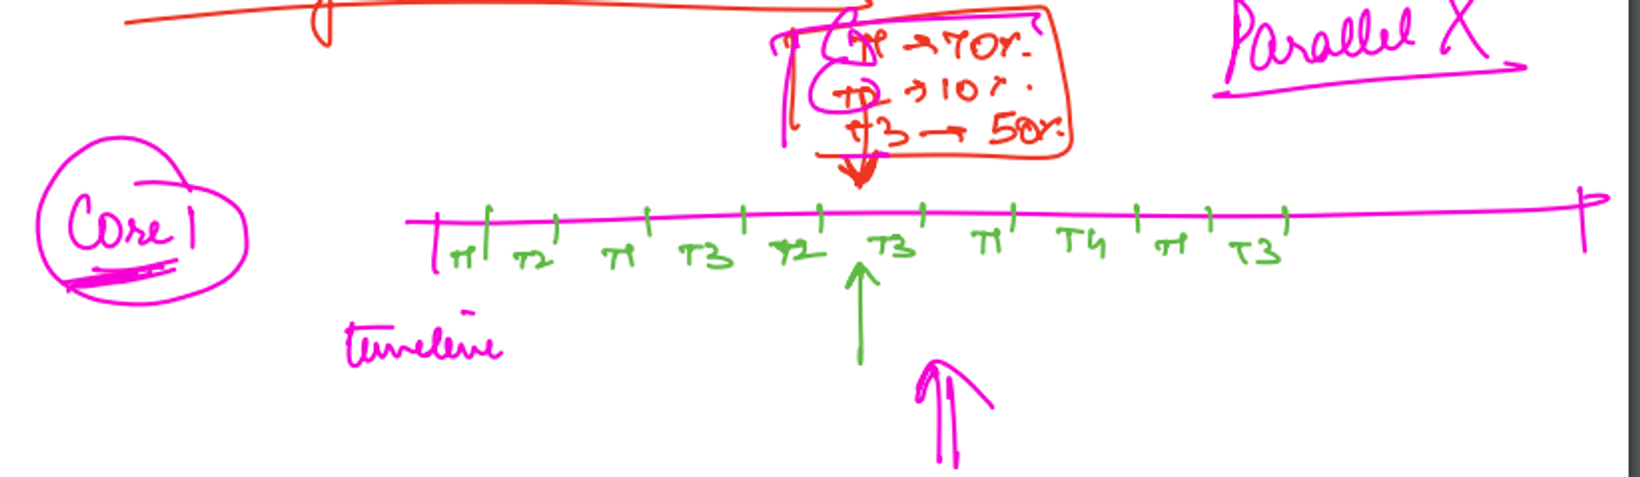 T1 → 70%.
T2 → 10%.
T3 → 50%.
Parallel X
Core 1
T1 T2 T1 T3 T2 T3 T1 T4 T1 T3
timeline